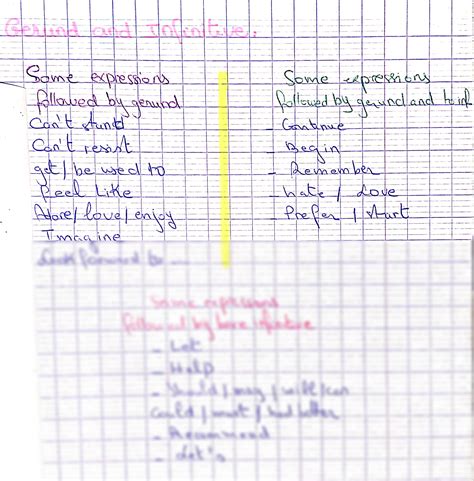 Gerund and Infinitive.
Some expressions
followed by gerund
Can't stand
Can't resist
get / be used to
Feel Like
Adore / love / enjoy
Imagine
Look forward to
Some expressions
followed by gerund and to inf
- Continue
- Begin
- Remember
- hate / Love
- Prefer / start
Some expressions
followed by bare infinitive
- Let
- Help
- Should / may / will / can
Could / must / had better
- Recommend
- Let's